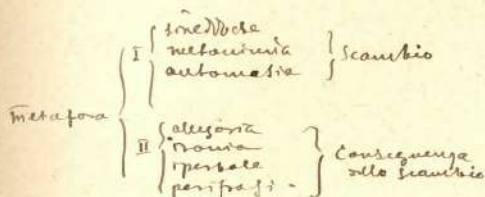 metafora
I
sineddoche
metonimia
antomasia
scambio
II
allegoria
ironia
iperbole
perifrasi.
Conseguenza
dello scambio